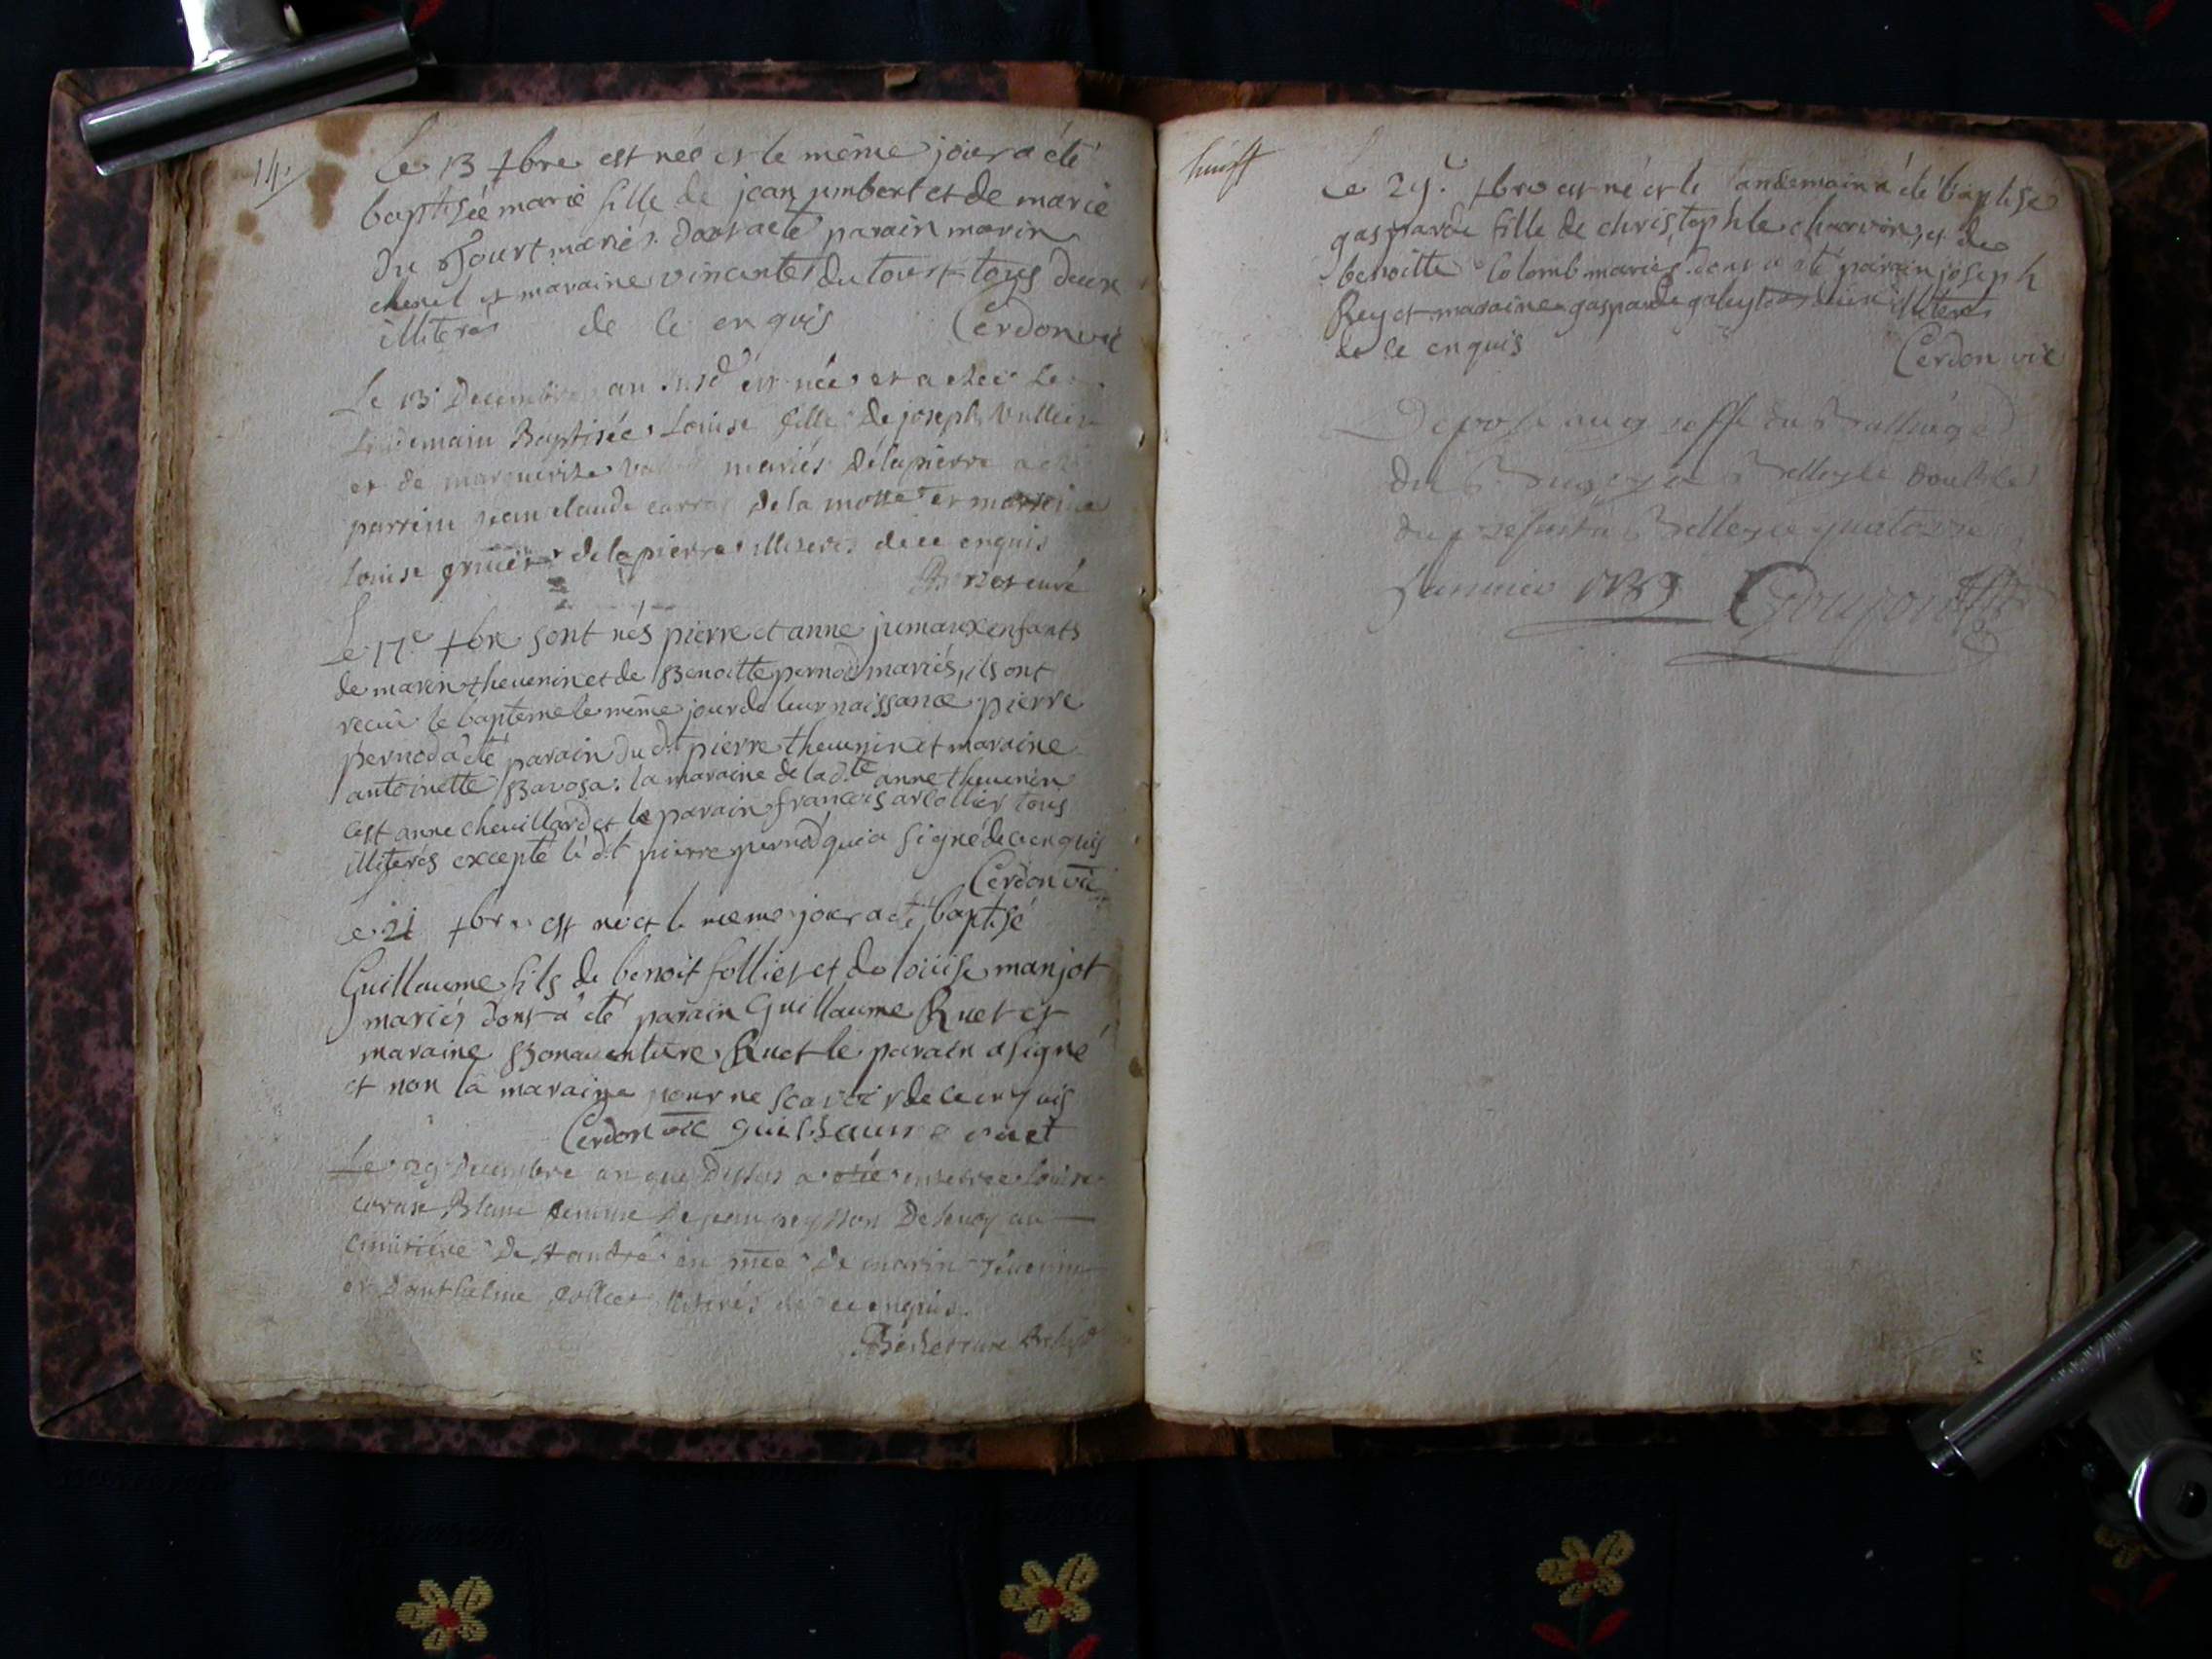 14.
Le 13 xbre est née et le même jour a été
baptisée marie fille de jean jumbert et de marie
du Tour mariés. dont a eté parain marin
chenel et maraine vincente du tour tous deux
illiterés de ce enquis Cerdon vic
Le 13 Decembre an susd est née et a étée le
lendemain Baptisée Louise fille de joseph Vullein
et de marguerite mariés delapierre a
parrein jean claude carra de la motte et marreine
Louise gruier delapierre illiterés de ce enquis
curé
Le 17e xbre sont nés pierre et anne jumaux enfants
de marin thevenin et de Benoitte pernod mariés, ils ont
recû le baptême le même jour de leur naissance pierre
pernod a été parain du dt pierre thevenin et maraine
antoinette Bavosa: la maraine de la d.te anne thevenin
est anne chevillard et le parain francois arlollier tous
illiterés excepté le dt pierre pernod qui a signé de ce enquis
Cerdon vic
Le 21 xbre est né et le meme jour a été baptisé
Guillaume fils de benoit follier et de louise manjot
mariés dont a été parain Guillaume Ruet et
maraine Bonaventure Ruet le parain a signé
et non la maraine pour ne scavoir de ce enquis
Cerdon vic guillaume ruet
Le 29 Decembre an que dessus a etée enterrée Louise
Blanc femme de jean De au
Cimitiére De st andré en pnce De marin
et D'anthelme Collet illiterés de ce enquis.
curé
Le 29e xbre est né et le landemain a été baptisé
gasparde fille de christophle charvin, et de
benoitte Colomb mariés dont a été parain joseph
Rey et maraine gasparde galley tous deux illiterés
de ce enquis Cerdon vic
Deposé au greffe du Bailliage
du Bugey a Belley le double
du present a Belley ce quatorze
Janvier 1789 Goujon